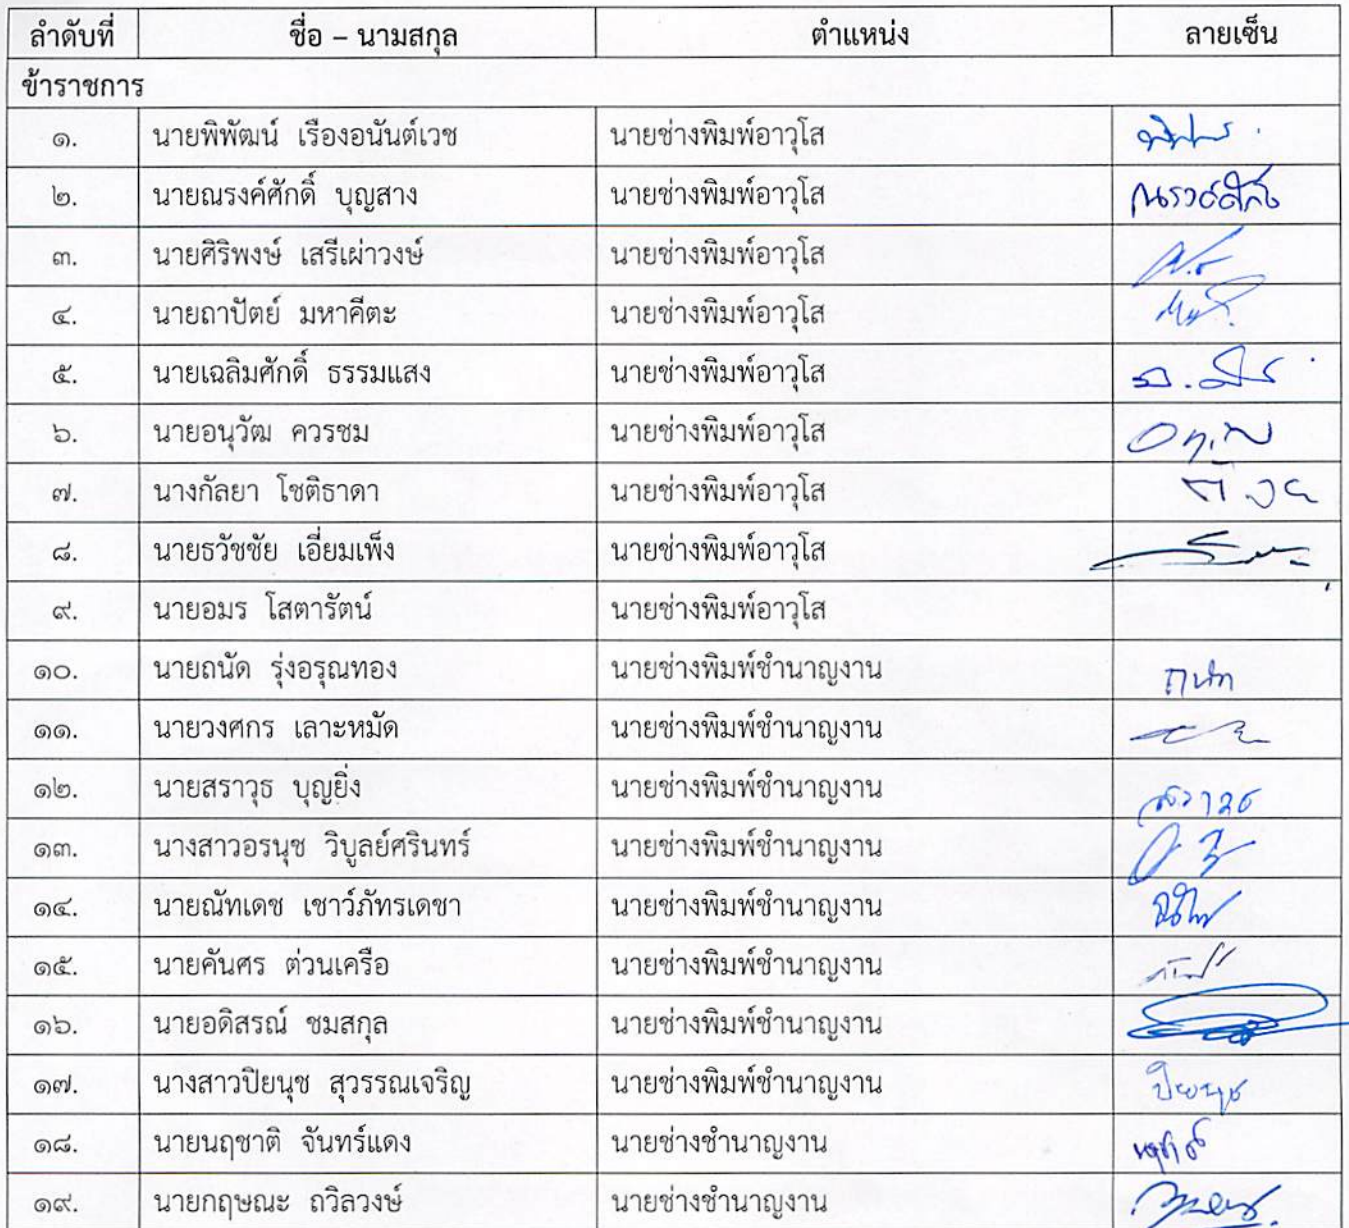 ลำดับที่ ชื่อ – นามสกุล ตำแหน่ง ลายเซ็น
ข้าราชการ
๑. นายพิพัฒน์ เรืองอนันต์เวช นายช่างพิมพ์อาวุโส
๒. นายณรงค์ศักดิ์ บุญสาง นายช่างพิมพ์อาวุโส ณรงค์ศักดิ์
๓. นายศิริพงษ์ เสรีเผ่าวงษ์ นายช่างพิมพ์อาวุโส
๔. นายถาปัตย์ มหาคีตะ นายช่างพิมพ์อาวุโส
๕. นายเฉลิมศักดิ์ ธรรมแสง นายช่างพิมพ์อาวุโส
๖. นายอนุวัฒ ควรชม นายช่างพิมพ์อาวุโส
๗. นางกัลยา โชติธาดา นายช่างพิมพ์อาวุโส
๘. นายธวัชชัย เอี่ยมเพ็ง นายช่างพิมพ์อาวุโส
๙. นายอมร โสตารัตน์ นายช่างพิมพ์อาวุโส
๑๐. นายถนัด รุ่งอรุณทอง นายช่างพิมพ์ชำนาญงาน ถนัด
๑๑. นายวงศกร เลาะหมัด นายช่างพิมพ์ชำนาญงาน
๑๒. นายสราวุธ บุญยิ่ง นายช่างพิมพ์ชำนาญงาน สราวุธ
๑๓. นางสาวอรนุช วิบูลย์ศรินทร์ นายช่างพิมพ์ชำนาญงาน
๑๔. นายณัทเดช เชาว์ภัทรเดชา นายช่างพิมพ์ชำนาญงาน
๑๕. นายคันศร ต่วนเครือ นายช่างพิมพ์ชำนาญงาน
๑๖. นายอดิสรณ์ ชมสกุล นายช่างพิมพ์ชำนาญงาน
๑๗. นางสาวปิยนุช สุวรรณเจริญ นายช่างพิมพ์ชำนาญงาน ปิยนุช
๑๘. นายนฤชาติ จันทร์แดง นายช่างชำนาญงาน นฤชาติ
๑๙. นายกฤษณะ ถวิลวงษ์ นายช่างชำนาญงาน